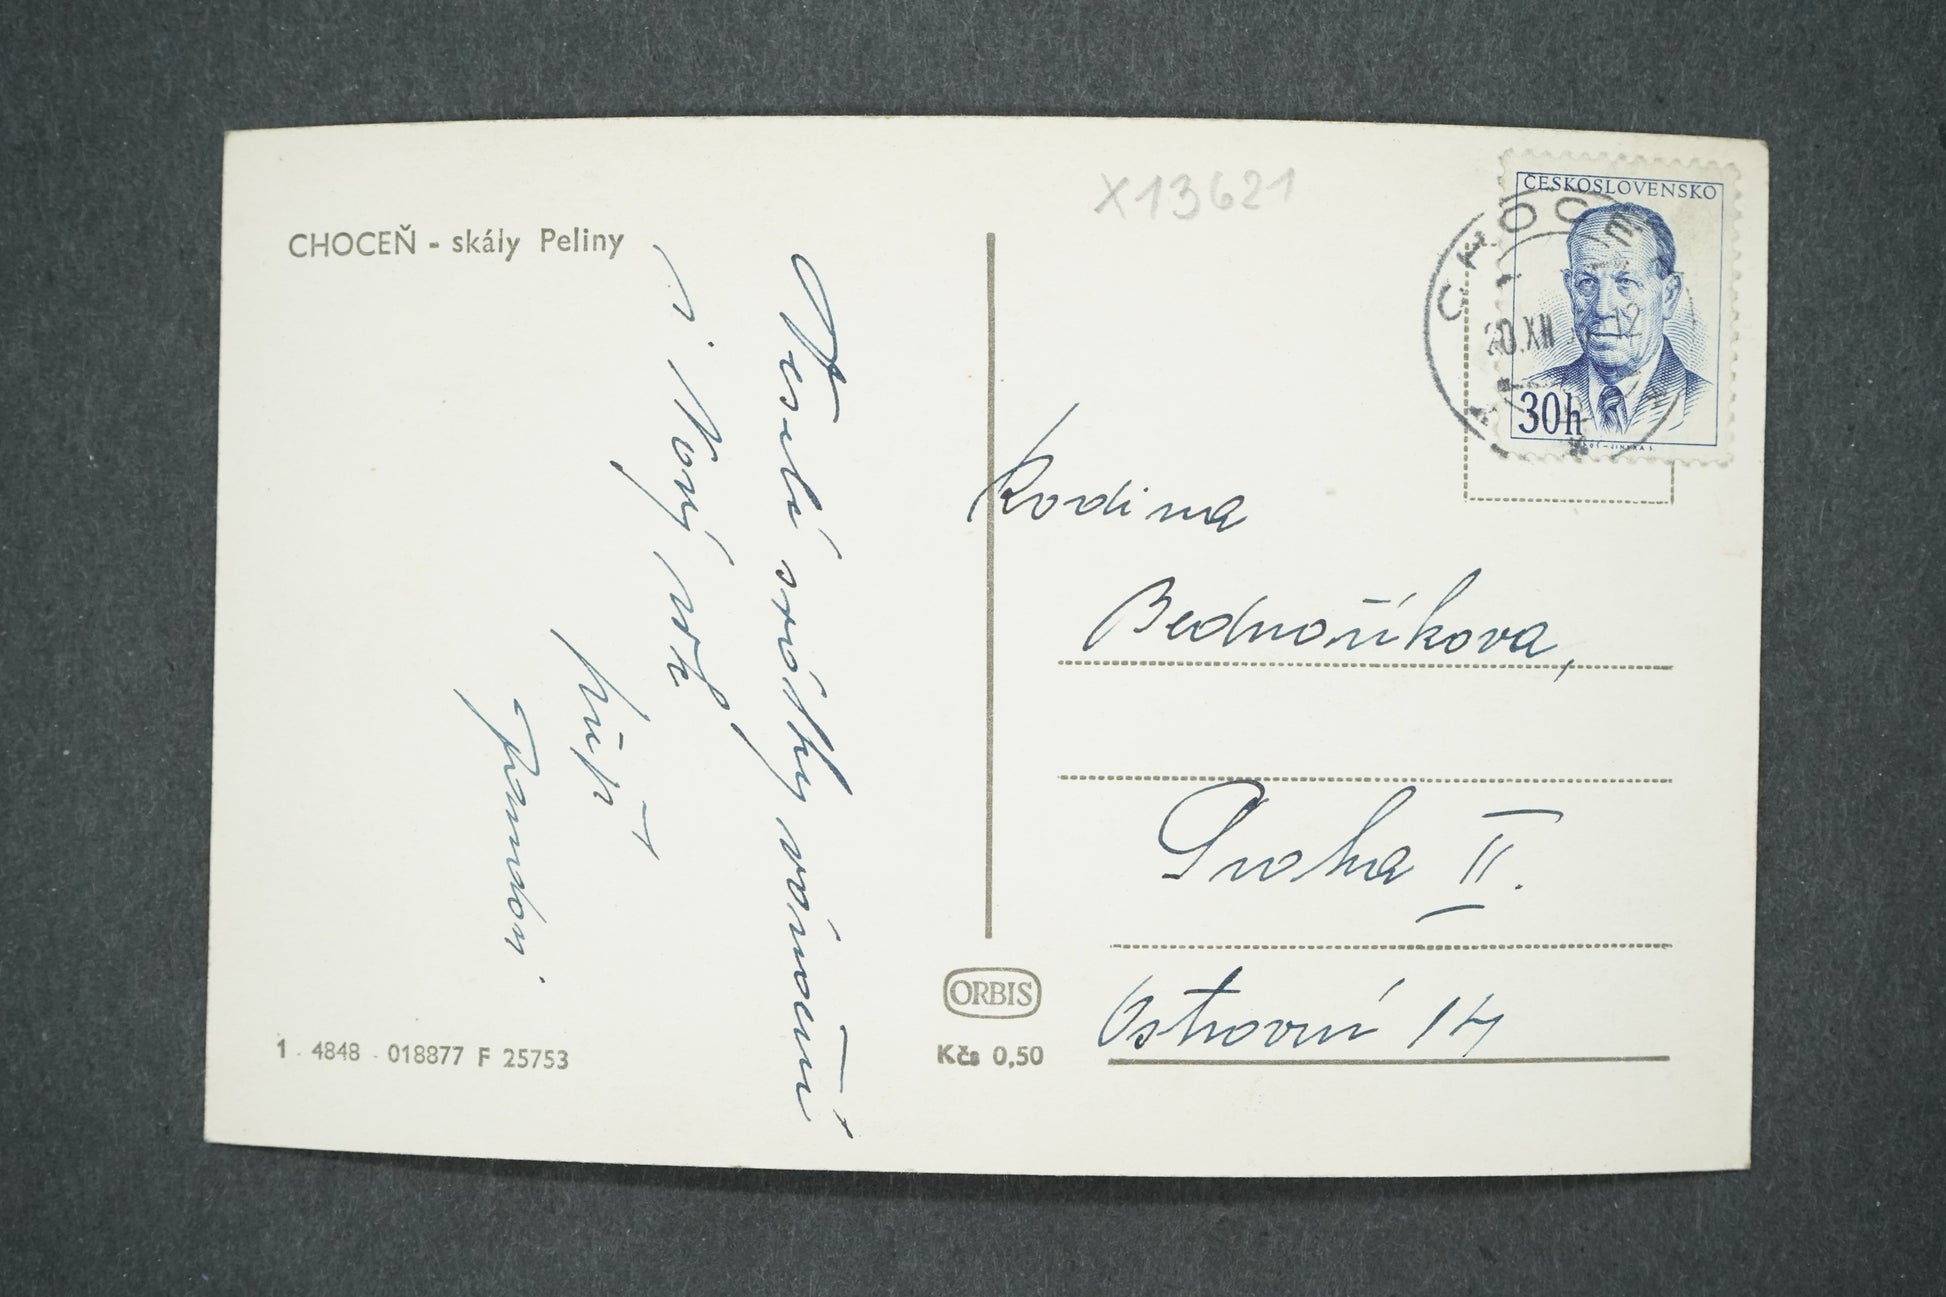 CHOCEŇ - skály Peliny
X13621
ČESKOSLOVENSKO
30h
CHOCEŇ
20.XII
Veselé svátky vánoční
a Nový rok
přejí
Rodina
Bednaříkova,
Praha II.
Ostrovní 14
ORBIS
Kčs 0,50
1 - 4848 - 018877 F 25753